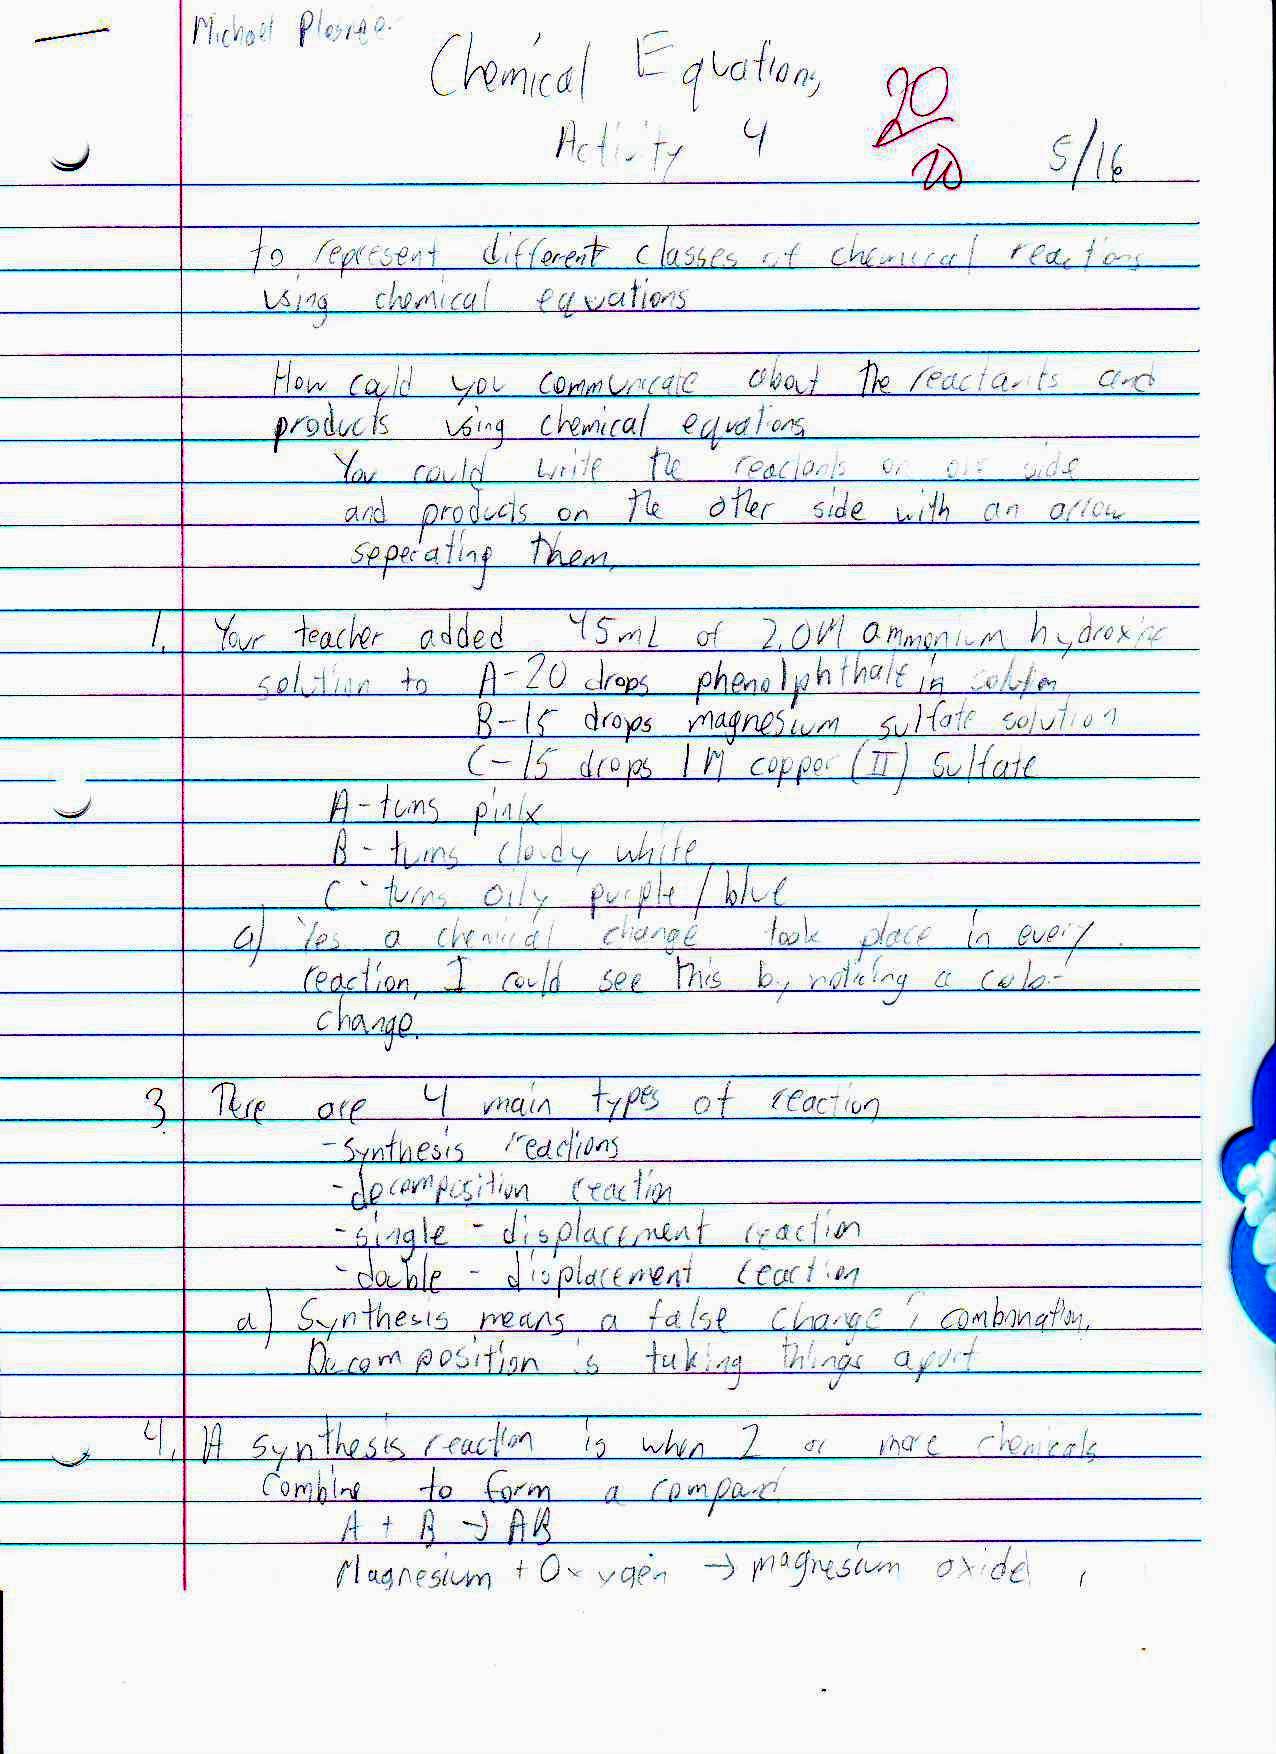 Michael
Chemical Equations
Activity 4
20
20
5/16
to represent different classes of chemical reactions
using chemical equations
How could you communicate about the reactants and
products using chemical equations
You could write the reactants on one side
and products on the other side with an arrow
seperating them.
1. Your teacher added 45mL of 2.0M ammonium hydroxine
solution to A-20 drops phenolphthalein solution
B-15 drops magnesium sulfate solution
C-15 drops 1M copper (II) sulfate
A-turns pink
B-turns cloudy white
C-turns oily purple/blue
a) Yes a chemical change took place in every
reaction, I could see this by noticing a color
change.
3. There are 4 main types of reaction
-synthesis reactions
-decomposition reaction
-single-displacement reaction
-double-displacement reaction
a) Synthesis means a false change, combination,
Decomposition is taking things apart
4. A synthesis reaction is when 2 or more chemicals
combine to form a compand
A + B → AB
Magnesium + Oxygen → magnesium oxide